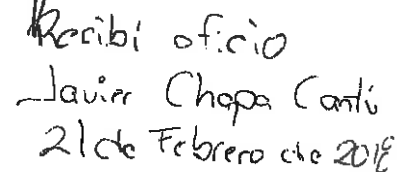 Recibí oficio
Javier Chapa Cantú
21 de Febrero de